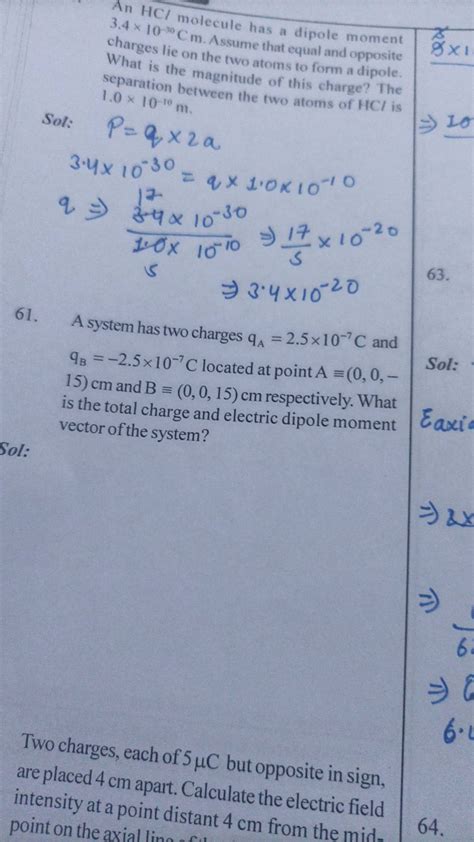 An HCl molecule has a dipole moment
3.4 × 10⁻³⁰ C m. Assume that equal and opposite
charges lie on the two atoms to form a dipole.
What is the magnitude of this charge? The
separation between the two atoms of HCl is
1.0 × 10⁻¹⁰ m.
Sol:
P = q × 2a
3.4 × 10⁻³⁰ = q × 1.0 × 10⁻¹⁰
17
q ⇒ 3.4 × 10⁻³⁰ / 1.0 × 10⁻¹⁰ ⇒ 17/5 × 10⁻²⁰
5
⇒ 3.4 × 10⁻²⁰
61. A system has two charges q_A = 2.5×10⁻⁷ C and
q_B = −2.5×10⁻⁷ C located at point A ≡ (0, 0, –
15) cm and B ≡ (0, 0, 15) cm respectively. What
is the total charge and electric dipole moment
vector of the system?
Sol:
Two charges, each of 5 μC but opposite in sign,
are placed 4 cm apart. Calculate the electric field
intensity at a point distant 4 cm from the mid-
point on the axial line
8 × 1
⇒ 10
63.
Sol:
Eaxia
⇒
⇒
6
⇒
6.
64.